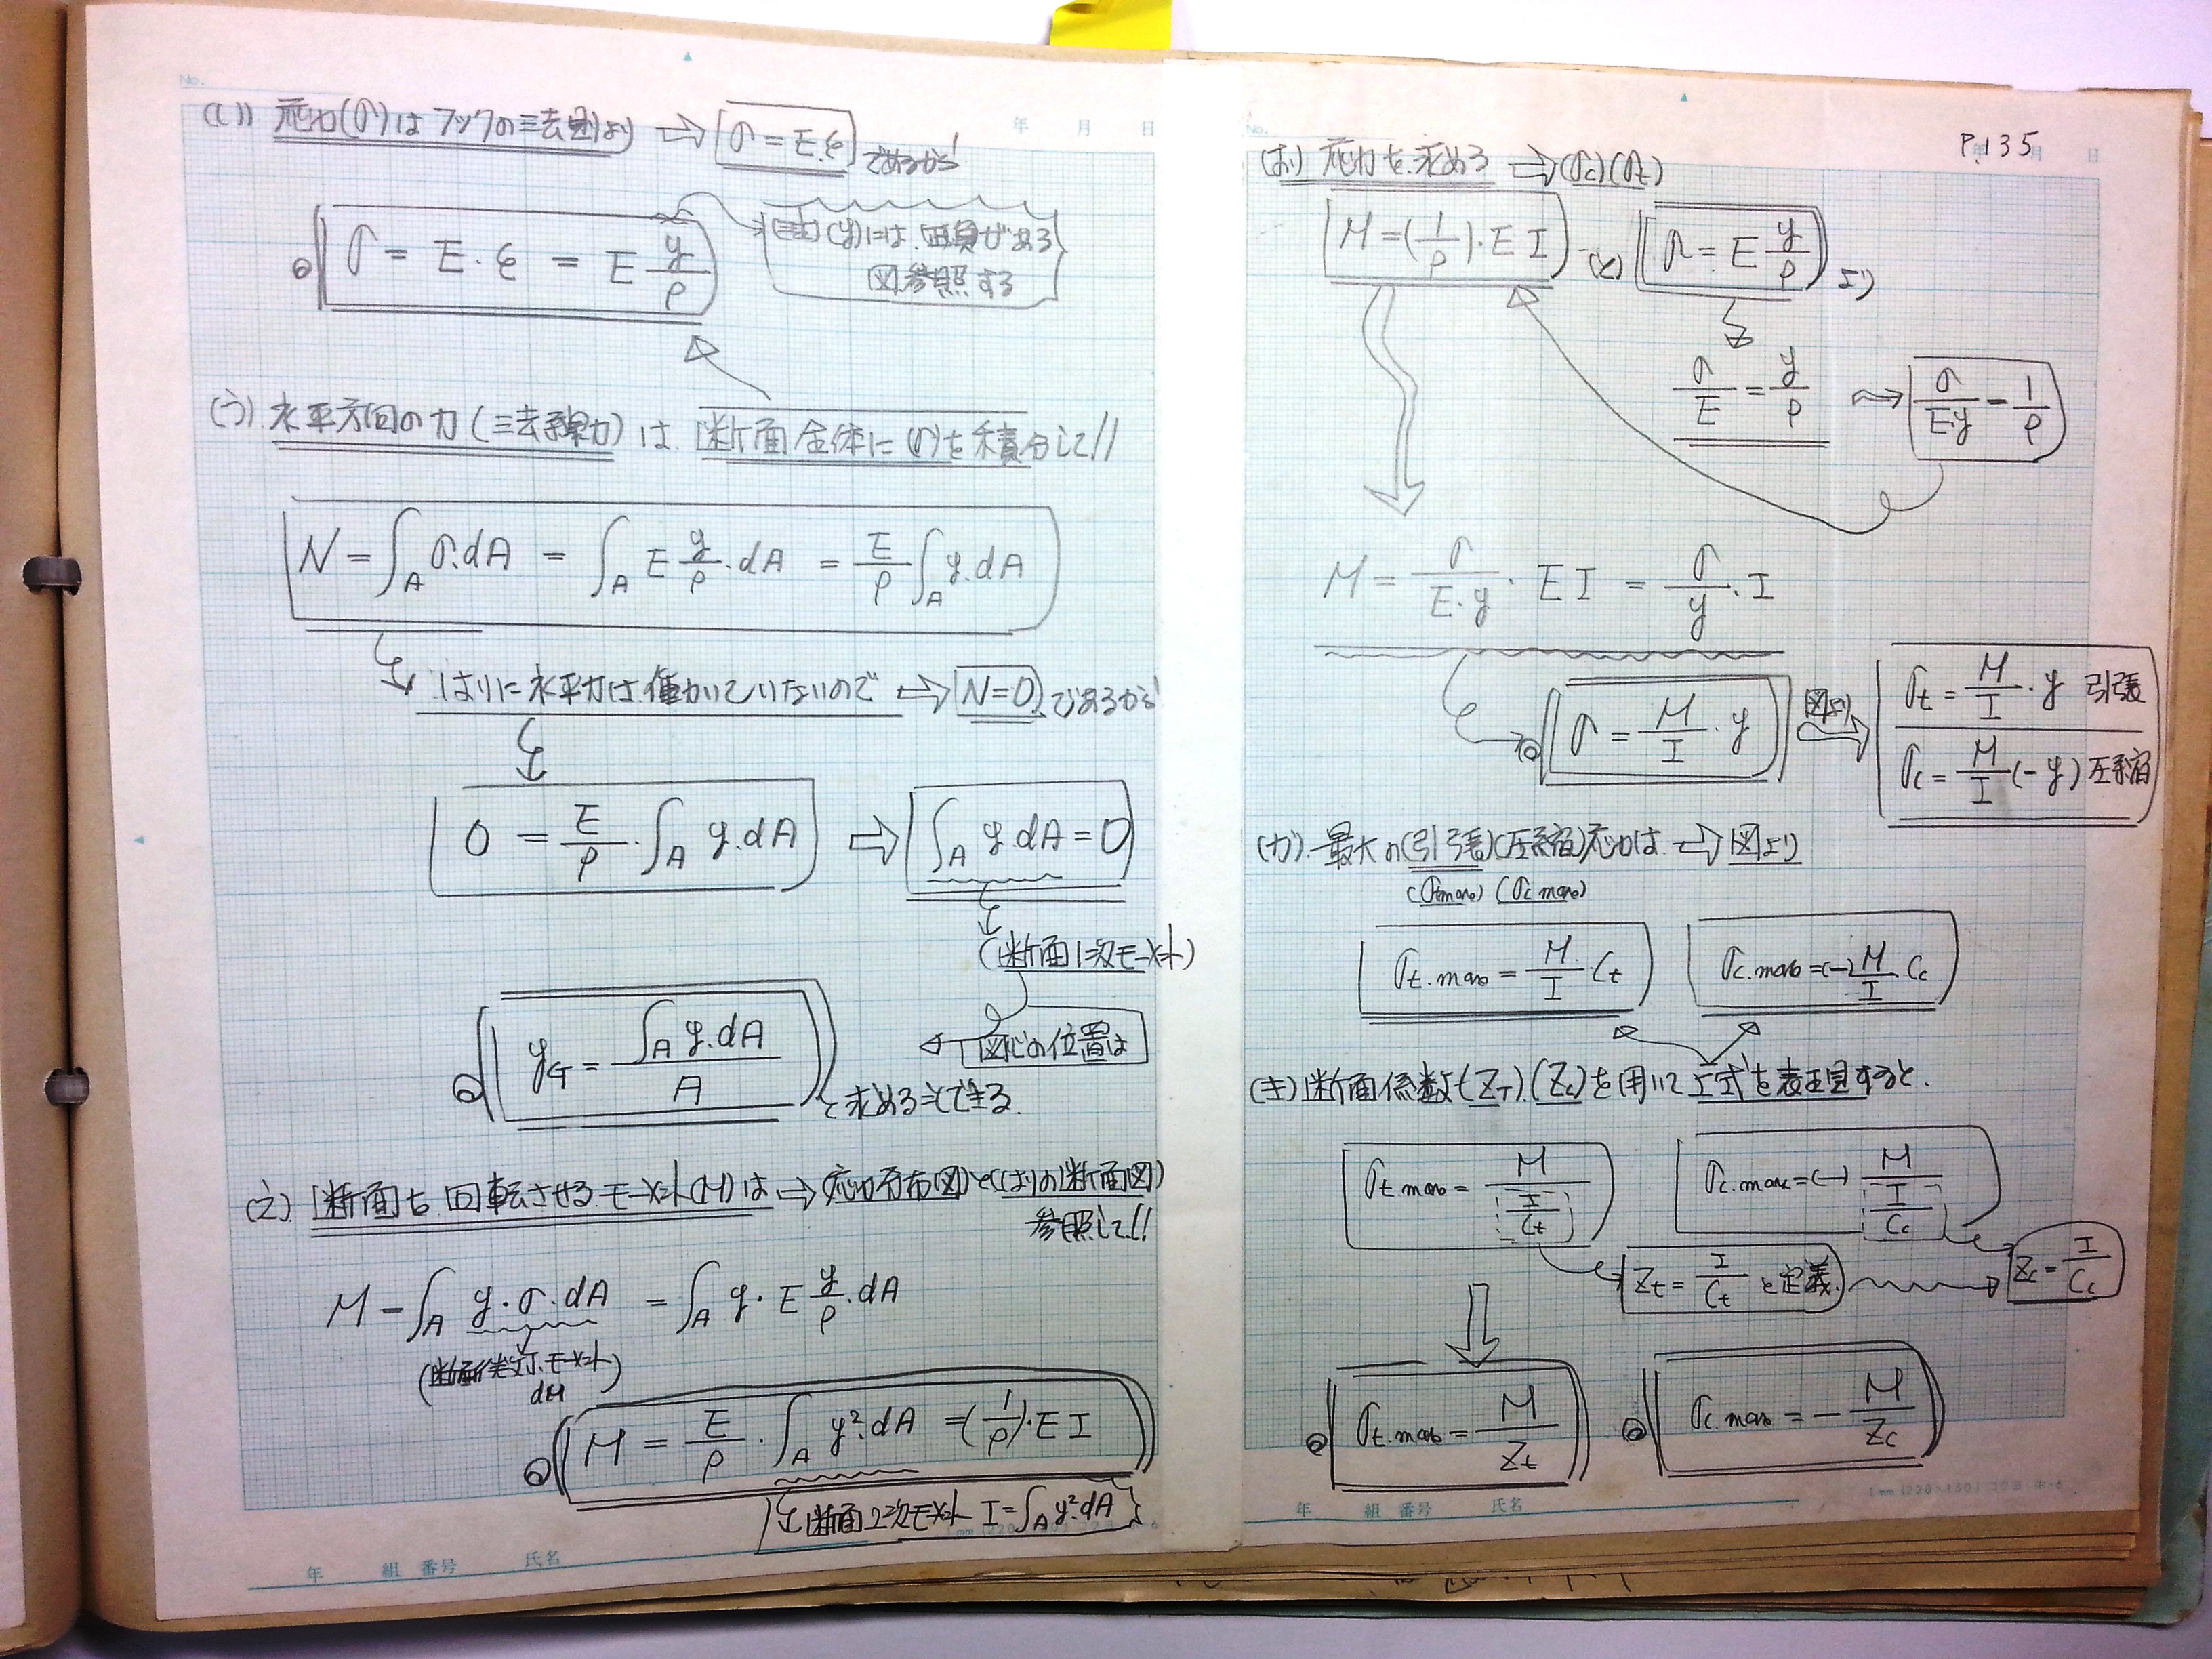 No.
年 月 日
(い) 応力(σ)はフックの法則より ⇒ σ=E.ε であるから!
σ = E・ε = E y/ρ
(注)(y)には、正負がある
図参照する
(う) 水平方向の力(法線力)は、断面全体に(σ)を積分して!!
N = ∫A σ.dA = ∫A E y/ρ・dA = E/ρ ∫A y.dA
はりに水平力は、働いていないので ⇒ N=0 であるから!
0 = E/ρ・∫A y.dA ⇒ ∫A y.dA = 0
(断面1次モーメント)
図心の位置は
yG = ∫A y.dA / A と求める事ができる.
(え) 断面を回転させるモーメント(M)は ⇒ (応力分布図)と(はりの断面図)
参照して!!
M = ∫A y・σ・dA = ∫A y・E y/ρ・dA
dM
M = E/ρ・∫A y².dA = (1/ρ)・E I
断面2次モーメント I = ∫A y².dA
年 組 番号 氏名
No.
P.135
月 日
(お) 応力を、求める ⇒ (σc)(σt)
M = (1/ρ)・E I (と) σ = E y/ρ より
σ/E = y/ρ ⇒ σ/E.y = 1/ρ
M = σ/E・y・E I = σ/y・I
σ = M/I・y 図より
σt = M/I・y 引張
σc = M/I (-y) 圧縮
(か). 最大の(引張)(圧縮)応力は ⇒ 図より
(σtmax) (σc max)
σt.max = M/I・Ct
σc.max = (-) M/I・Cc
(き) 断面係数(ZT).(Zc)を用いて上式を表現すると.
σt.max = M / (I/Ct)
σc.max = (-) M / (I/Cc)
Zt = I/Ct と定義.
Zc = I/Cc
σt.max = M/Zt
σc.max = - M/Zc
年 組 番号 氏名